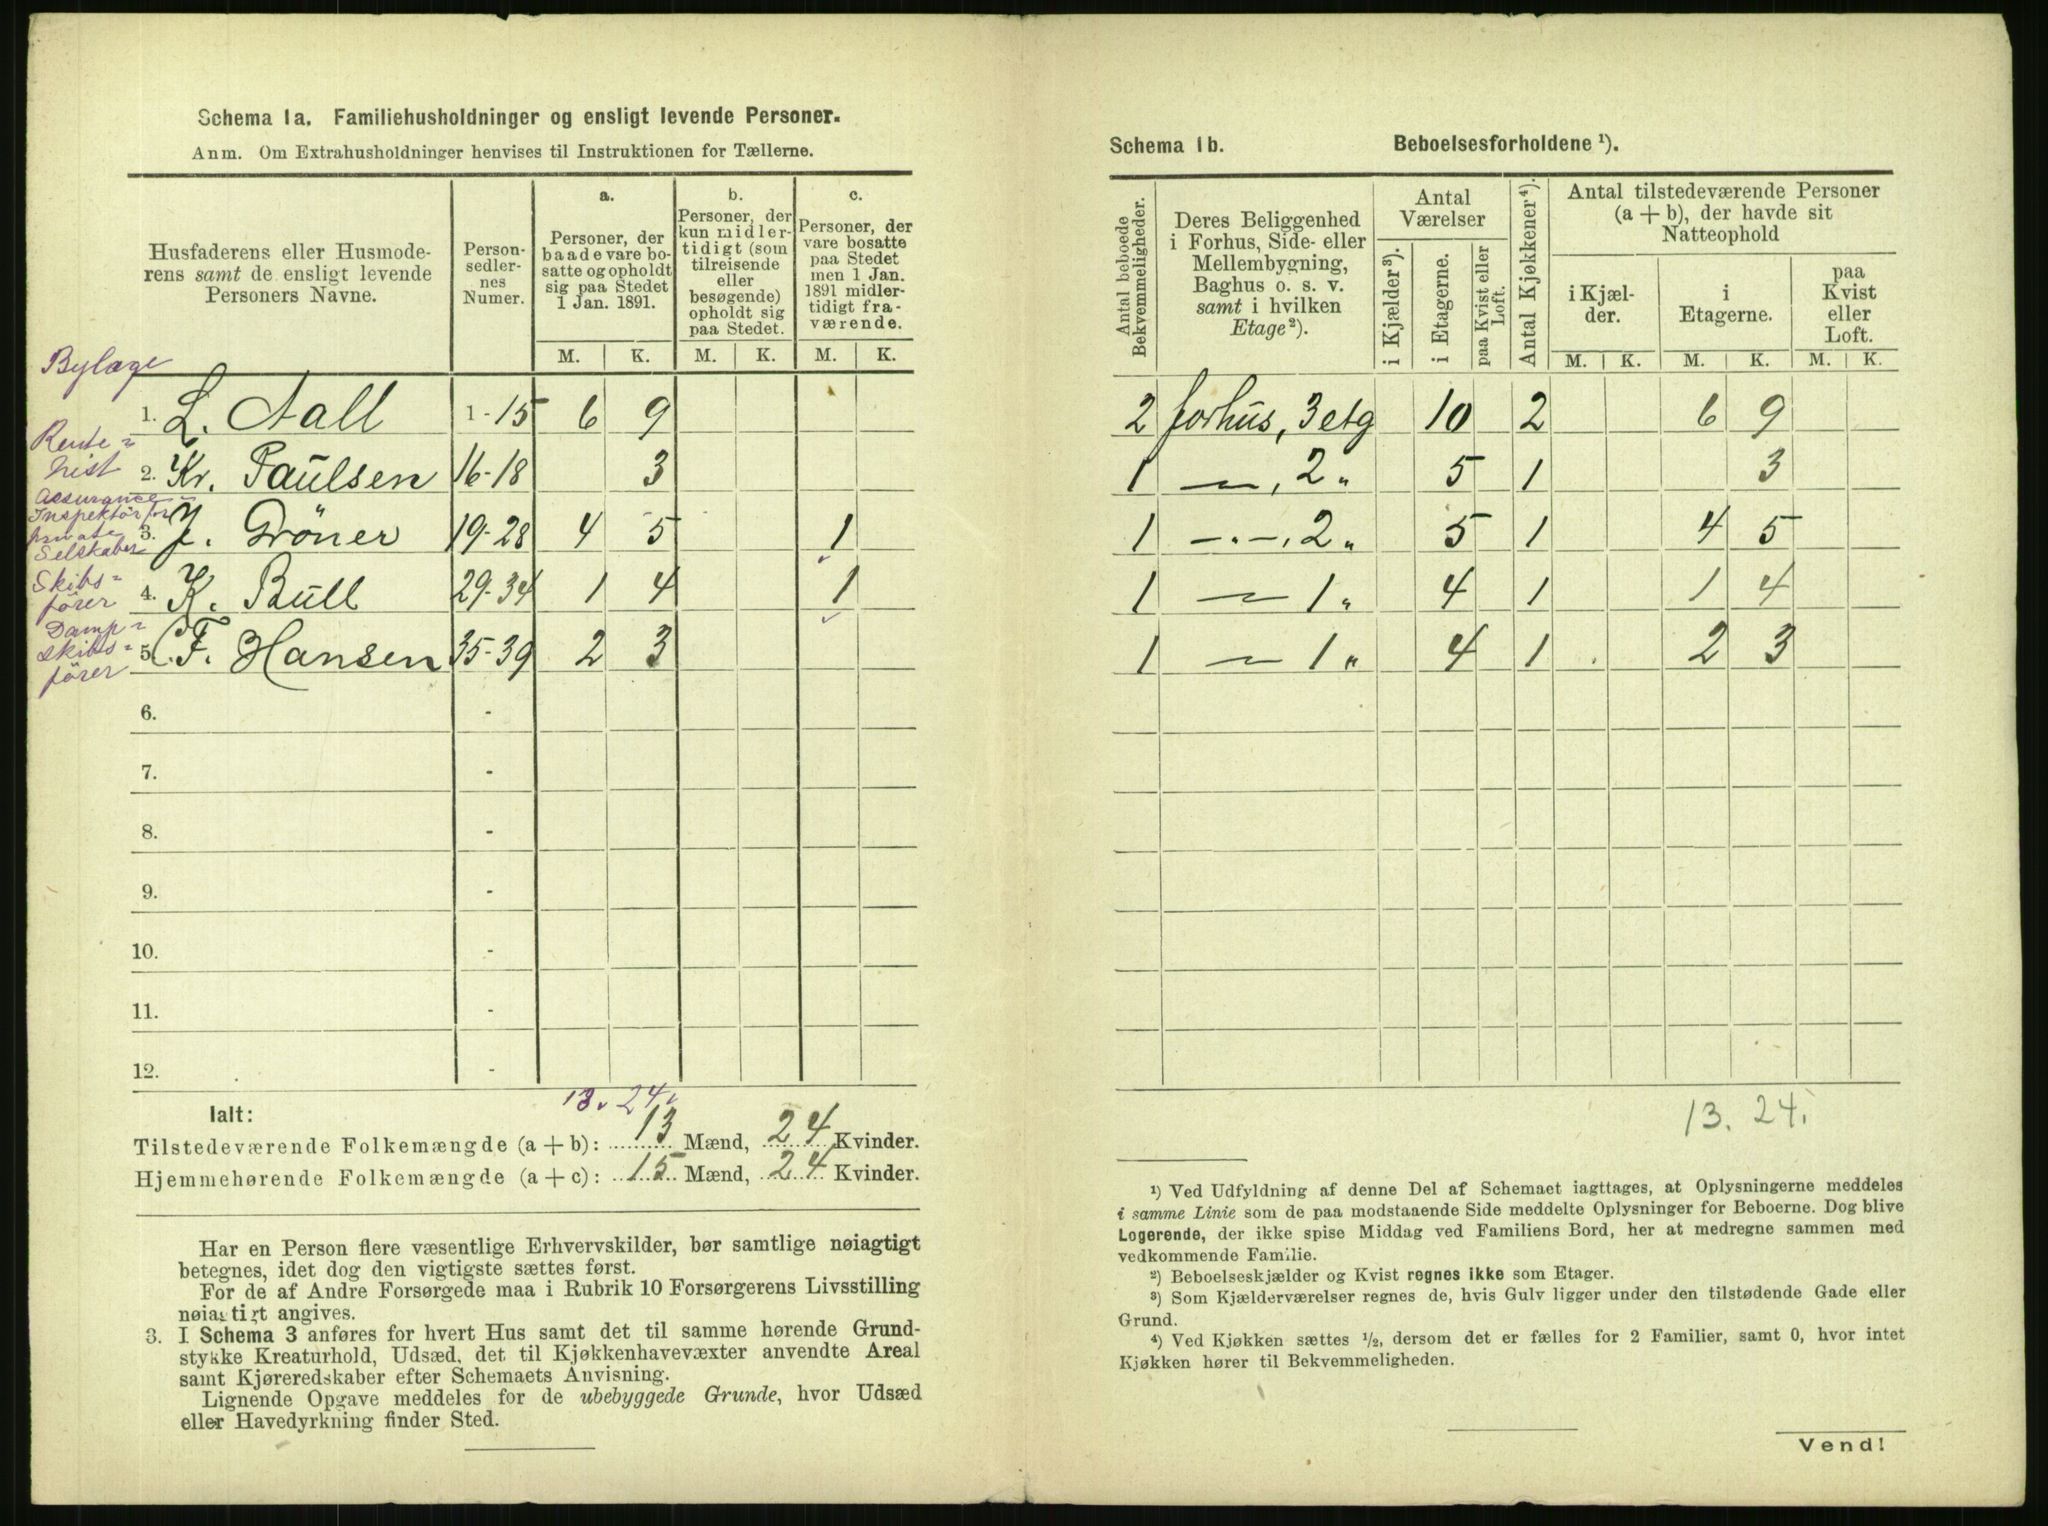 Schema 1a. Familiehusholdninger og ensligt levende Personer.
Anm. Om Extrahusholdninger henvises til Instruktionen for Tællerne.
Husfaderens eller Husmoderens samt de ensligt levende Personers Navne.
Personsedlernes Numer.
a.
Personer, der baade vare bosatte og opholdt sig paa Stedet 1 Jan. 1891.
b.
Personer, der kun midlertidigt (som tilreisende eller besøgende) opholdt sig paa Stedet.
c.
Personer, der vare bosatte paa Stedet men 1 Jan. 1891 midlertidigt fraværende.
M. K. M. K. M. K.
Bylæge
1. L. Aall 1-15 6 9
Rentenist
2. Kr. Paulsen 16-18 3
Assurance-
Inspektör for
private
Selskaber
3. J. Gröner 19-28 4 5 1
Skibs-
förer
4. K. Bull 29-34 1 4 1
Damp-
skibs-
förer
5. C. F. Hansen 35-39 2 3
6. -
7. -
8. -
9. -
10. -
11. -
12. -
13. 24.
Ialt:
Tilstedeværende Folkemængde (a + b): 13 Mænd, 24 Kvinder.
Hjemmehørende Folkemængde (a + c): 15 Mænd, 24 Kvinder.
Har en Person flere væsentlige Erhvervskilder, bør samtlige nøiagtigt
betegnes, idet dog den vigtigste sættes først.
For de af Andre Forsørgede maa i Rubrik 10 Forsørgerens Livsstilling
nøiagtigt angives.
3. I Schema 3 anføres for hvert Hus samt det til samme hørende Grund-
stykke Kreaturhold, Udsæd, det til Kjøkkenhavevæxter anvendte Areal
samt Kjøreredskaber efter Schemaets Anvisning.
Lignende Opgave meddeles for de ubebyggede Grunde, hvor Udsæd
eller Havedyrkning finder Sted.
Schema 1b. Beboelsesforholdene ¹).
Antal beboede Bekvemmeligheder.
Deres Beliggenhed i Forhus, Side- eller Mellembygning, Baghus o. s. v. samt i hvilken Etage ²).
Antal Værelser
i Kjælder ³).
i Etagerne.
paa Kvist eller Loft.
Antal Kjøkkener ⁴).
Antal tilstedeværende Personer (a + b), der havde sit Natteophold
i Kjælder.
i Etagerne.
paa Kvist eller Loft.
M. K. M. K. M. K.
2 forhus, 3 etg 10 2 6 9
1 —„—, 2 „ 5 1 3
1 —„—, 2 „ 5 1 4 5
1 —„— 1 „ 4 1 1 4
1 —„— 1 „ 4 1 2 3
13. 24.
¹) Ved Udfyldning af denne Del af Schemaet iagttages, at Oplysningerne meddeles
i samme Linie som de paa modstaaende Side meddelte Oplysninger for Beboerne. Dog blive
Logerende, der ikke spise Middag ved Familiens Bord, her at medregne sammen med
vedkommende Familie.
²) Beboelseskjælder og Kvist regnes ikke som Etager.
³) Som Kjælderværelser regnes de, hvis Gulv ligger under den tilstødende Gade eller
Grund.
⁴) Ved Kjøkken sættes ½, dersom det er fælles for 2 Familier, samt 0, hvor intet
Kjøkken hører til Bekvemmeligheden.
Vend!